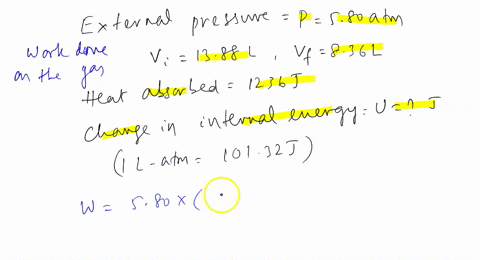 External pressure = P = 5.80 atm
Work done on the gas
Vi = 13.88 L , Vf = 8.36 L
Heat absorbed = 1236 J
Change in internal energy: U = ? J
(1 L-atm = 101.32 J)
W = 5.80 × (